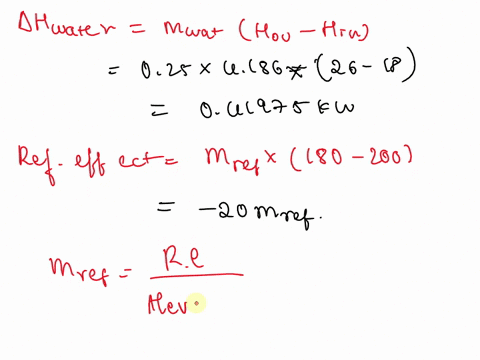 ΔHwater = mwat (Hou - Hin)
= 0.25 x 4.186 x (26 - 18)
= 0.41975 kW
Ref. effect = mref x (180 - 200)
= -20 mref.
mref = R.e
Hev